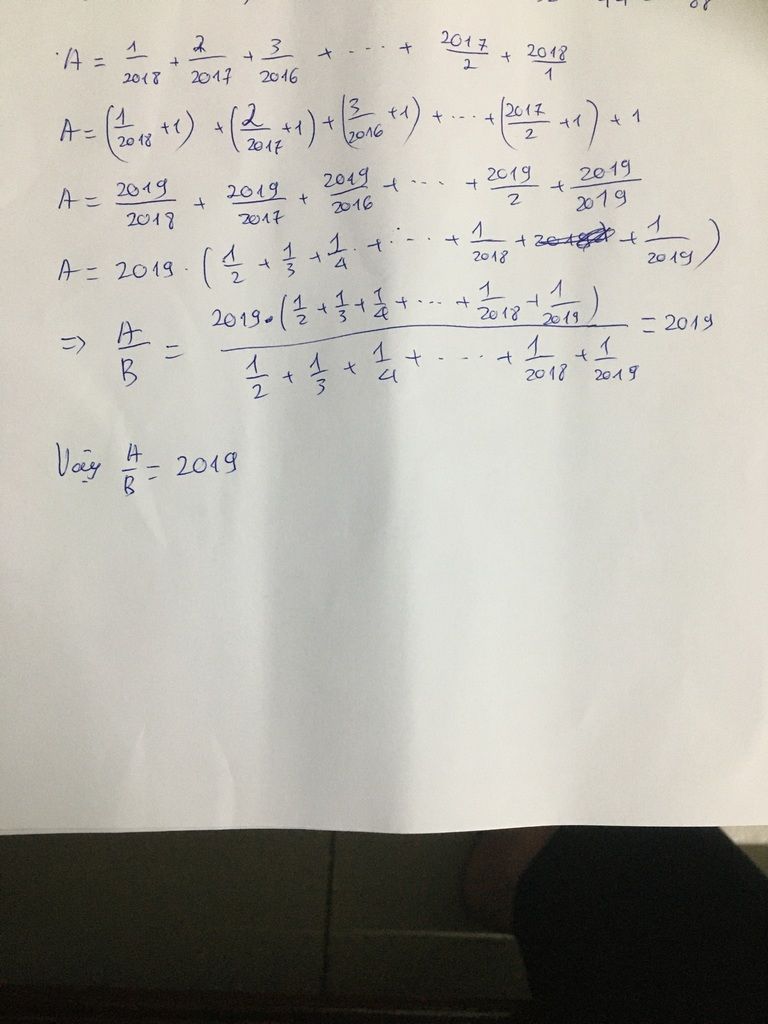 A = 1/2018 + 2/2017 + 3/2016 + ... + 2017/2 + 2018/1
A = (1/2018 + 1) + (2/2017 + 1) + (3/2016 + 1) + ... + (2017/2 + 1) + 1
A = 2019/2018 + 2019/2017 + 2019/2016 + ... + 2019/2 + 2019/2019
A = 2019 . (1/2 + 1/3 + 1/4 + ... + 1/2018 + + 1/2019)
=> A/B = 2019.(1/2 + 1/3 + 1/4 + ... + 1/2018 + 1/2019) / 1/2 + 1/3 + 1/4 + ... + 1/2018 + 1/2019 = 2019
Vậy A/B = 2019